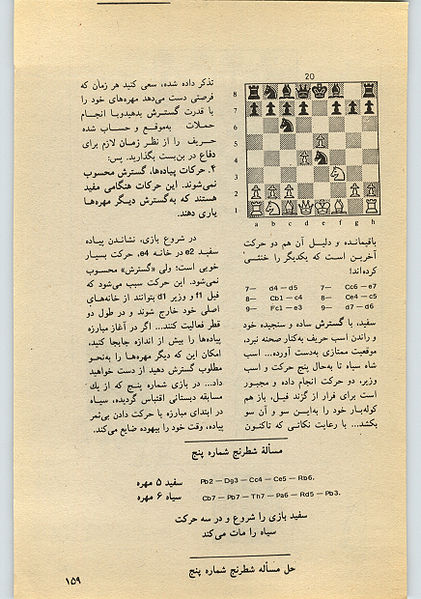 تذکر داده شده، سعی کنید هر زمان که
فرصتی دست می‌دهد مهره‌های خود را
با قدرت گسترش بدهیدوبا انجام
حملات به‌موقع و حساب شده
حریف را از نظر زمان لازم برای
دفاع در بن‌بست بگذارید. پس:
۴. حرکات پیاده‌ها، گسترش محسوب
نمی‌شوند. این حرکات هنگامی مفید
هستند که به‌گسترش دیگر مهره‌ها
یاری دهند.
در شروع بازی، نشاندن پیاده
سفید e2 در خانه e4، حرکت بسیار
خوبی است؛ ولی «گسترش» محسوب
نمی‌شود. این حرکت سبب می‌شود که
فیل f1 و وزیر d1 بتوانند از خانه‌های
اصلی خود خارج شوند و در طول دو
قطر فعالیت کنند... اگر در آغاز مبارزه
پیاده‌ها را بیش از اندازه جابجا کنید،
امکان این که دیگر مهره‌ها را به‌نحو
مطلوب گسترش دهید از دست خواهید
داد... در بازی شماره پنج که از یك
مسابقه دبستانی اقتباس گردیده، سیاه
در ابتدای مبارزه با حرکت دادن بی‌ثمر
پیاده، وقت خود را بیهوده ضایع می‌کند.
20
8
7
6
5
4
3
2
1
a b c d e f g h
باقیمانده و دلیل آن هم دو حرکت
آخرین است که یکدیگر را خنثی
کرده‌اند!
7— d4 — d5 7— Cc6 — e7
8— Cb1 — c4 8— Ce4 — c5
9— Fc1 — e3 9— d7 — d6
سفید، با گسترش ساده و سنجیده خود
و راندن اسب حریف به‌کنار صحنه نبرد،
موقعیت ممتازی به‌دست آورده... اسب
شاه سیاه تا به‌حال پنج حرکت و اسب
وزیر، دو حرکت انجام داده و مجبور
است برای فرار از گزند فیل، باز هم
کوله‌بار خود را به‌این سو و آن سو
بکشد... با رعایت نکاتی که تاکنون
مسألهٔ شطرنج شماره پنج
سفید ۵ مهره Pb2 — Dg3 — Cc4 — Ce5 — Rb6.
سیاه ۶ مهره Cb7 — Pb7 — Th7 — Pa6 — Rd5 — Pb3.
سفید بازی را شروع و در سه حرکت
سیاه را مات می‌کند
حل مسأله شطرنج شماره پنج
۱۵۹